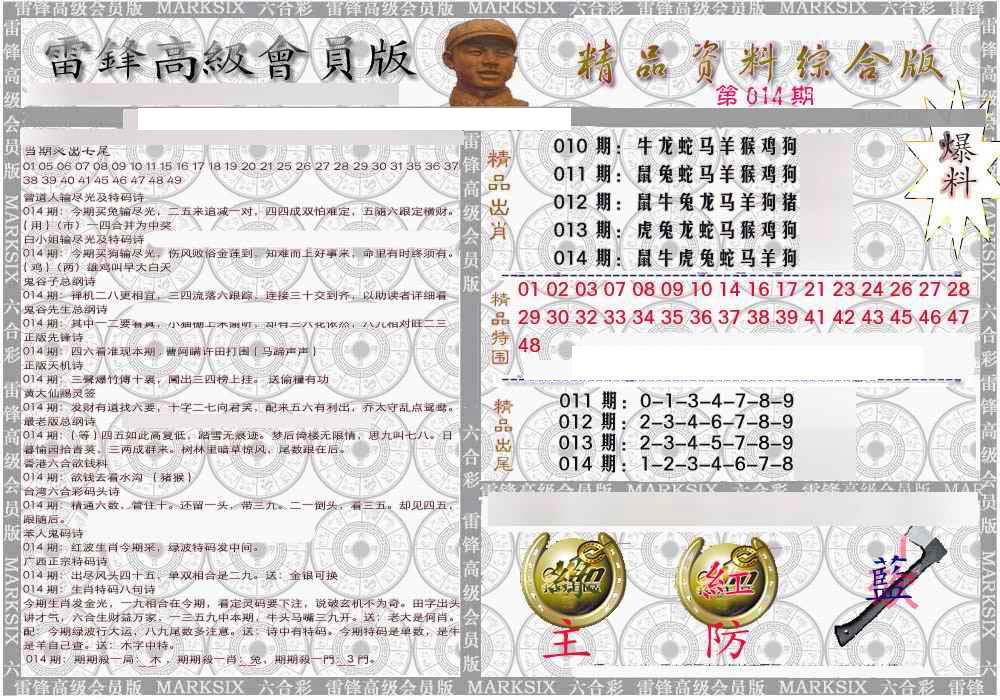 雷锋高级会员版 MARKSIX 六合彩 雷锋高级会员版 MARKSIX 六合彩 雷锋高级会员版 MARKSIX 六合彩 雷锋
雷鋒高級會員版
精品资料综合版
第014期
爆料
当期奖出七尾
01 05 06 07 08 09 10 11 15 16 17 18 19 20 21 25 26 27 28 29 30 31 35 36 37
38 39 40 41 45 46 47 48 49
曾道人输尽光及特码诗
014期：今期买兔输尽光，二五来追减一对，四四成双怕难定，五随六跟定横财。
{用}（市）一四合并为中奖
白小姐输尽光及特码诗
014期：今期买狗输尽光，伤风败俗金莲到，知难而上好事来，命里有时终须有。
{鸡}（两）雄鸡叫早大白天
鬼谷子总纲诗
014期：禅机二八更相宜，三四流落六跟踪，连接三十交到齐，以助读者详细看
鬼谷先生总纲诗
014期：其中一二要看真，小猫棚上来偷听，却有三六花依然，八九相对旺二三
正版先锋诗
014期：四六看准现本期，曹阿瞒许田打围{马蹄声声}
正版天机诗
014期：三聲爆竹傳十裏，闖出三四榜上挂。送偷糧有功
黄大仙赐灵签
014期：发财有道找六要，十字二七向君笑，配来五六有利出，乔太守乱点鸳鸯。
最老版总纲诗
014期：{等}四五如此高复低，踏雪无痕迹。梦后倚楼无限情，思九叫七八。日
暮愉四拾青英，三两成群来。树林里暗草惊风，尾数跟在后。
香港六合欲钱料
014期：欲钱去看水沟 （猪猴）
台湾六合彩码头诗
014期：精通六数，管住十。还留一头，带三九。二一倒头，看三五。却见四五，
跟随后。
本人鬼码诗
014期：红波生肖今期来，绿波特码发中间。
广西正宗特码诗
014期：出尽风头四十五，单双相合是二九。送：金银可换
014期：生肖特码八句诗
今期生肖发金光，一九相合在今期，看定灵码要下注，说破玄机不为奇。田字出头
讲才气，六合生财益万家，一三五九中本期，牛头马嘴三九开。送：老大是何肖。
配：今期绿波行大运，八九尾数多注意。送：诗中有特码。今期特码是单数，是牛
是羊自己查。送：木字中特。
014期：期期殺一局：木，期期殺一肖：兔，期期殺一門：3門。
精品出肖
010 期：牛龙蛇马羊猴鸡狗
011 期：鼠兔蛇马羊猴鸡狗
012 期：鼠牛兔龙马羊狗猪
013 期：虎兔龙蛇马猴鸡狗
014 期：鼠牛虎兔蛇马羊狗
精品特围
01 02 03 07 08 09 10 14 16 17 21 23 24 26 27 28
29 30 32 33 34 35 36 37 38 39 41 42 43 45 46 47
48
精品出尾
011 期：0-1-3-4-7-8-9
012 期：2-3-4-6-7-8-9
013 期：2-3-4-5-7-8-9
014 期：1-2-3-4-6-7-8
主
紅
防
藍
雷锋高级会员版 MARKSIX 六合彩 雷锋高级会员版 MARKSIX 六合彩 雷锋高级会员版 MARKSIX 六合彩 雷锋